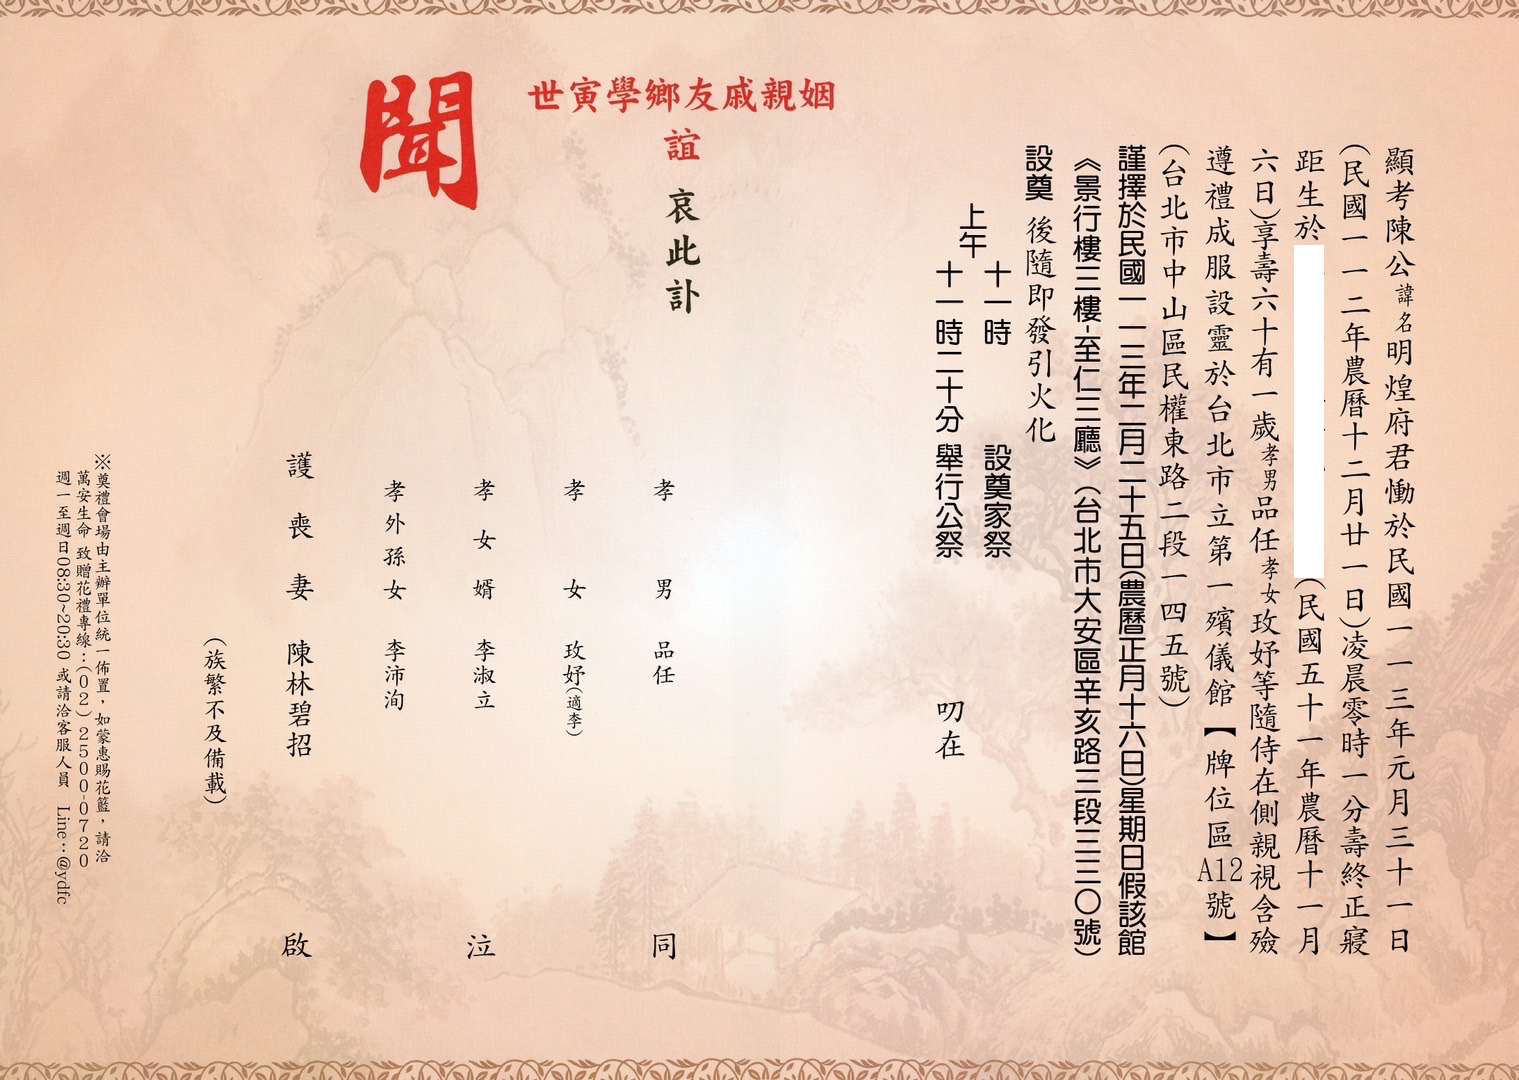 顯考陳公諱名明煌府君慟於民國一一三年元月三十一日
(民國一一二年農曆十二月廿一日)凌晨零時一分壽終正寢
距生於
(民國五十一年農曆十一月
六日)享壽六十有一歲孝男品任孝女玫妤等隨侍在側親視含殮
遵禮成服設靈於台北市立第一殯儀館【牌位區A12號】
(台北市中山區民權東路二段一四五號)
謹擇於民國一一三年二月二十五日(農曆正月十六日)星期日假該館
《景行樓三樓-至仁三廳》(台北市大安區辛亥路三段三三〇號)
設奠 後隨即發引火化
上午
十一時 設奠家祭
十一時二十分 舉行公祭
叨在
姻親戚友鄉學寅世
誼
哀此訃
聞
孝男 品任
孝女 玫妤(適李)
孝女婿 李淑立
孝外孫女 李沛洵
護喪妻 陳林碧招
同
泣
啟
(族繁不及備載)
※奠禮會場由主辦單位統一佈置,如蒙惠賜花籃,請洽
萬安生命 致贈花禮專線:(02)2500-0720
週一至週日08:30~20:30 或請洽客服人員 Line:@ydfc